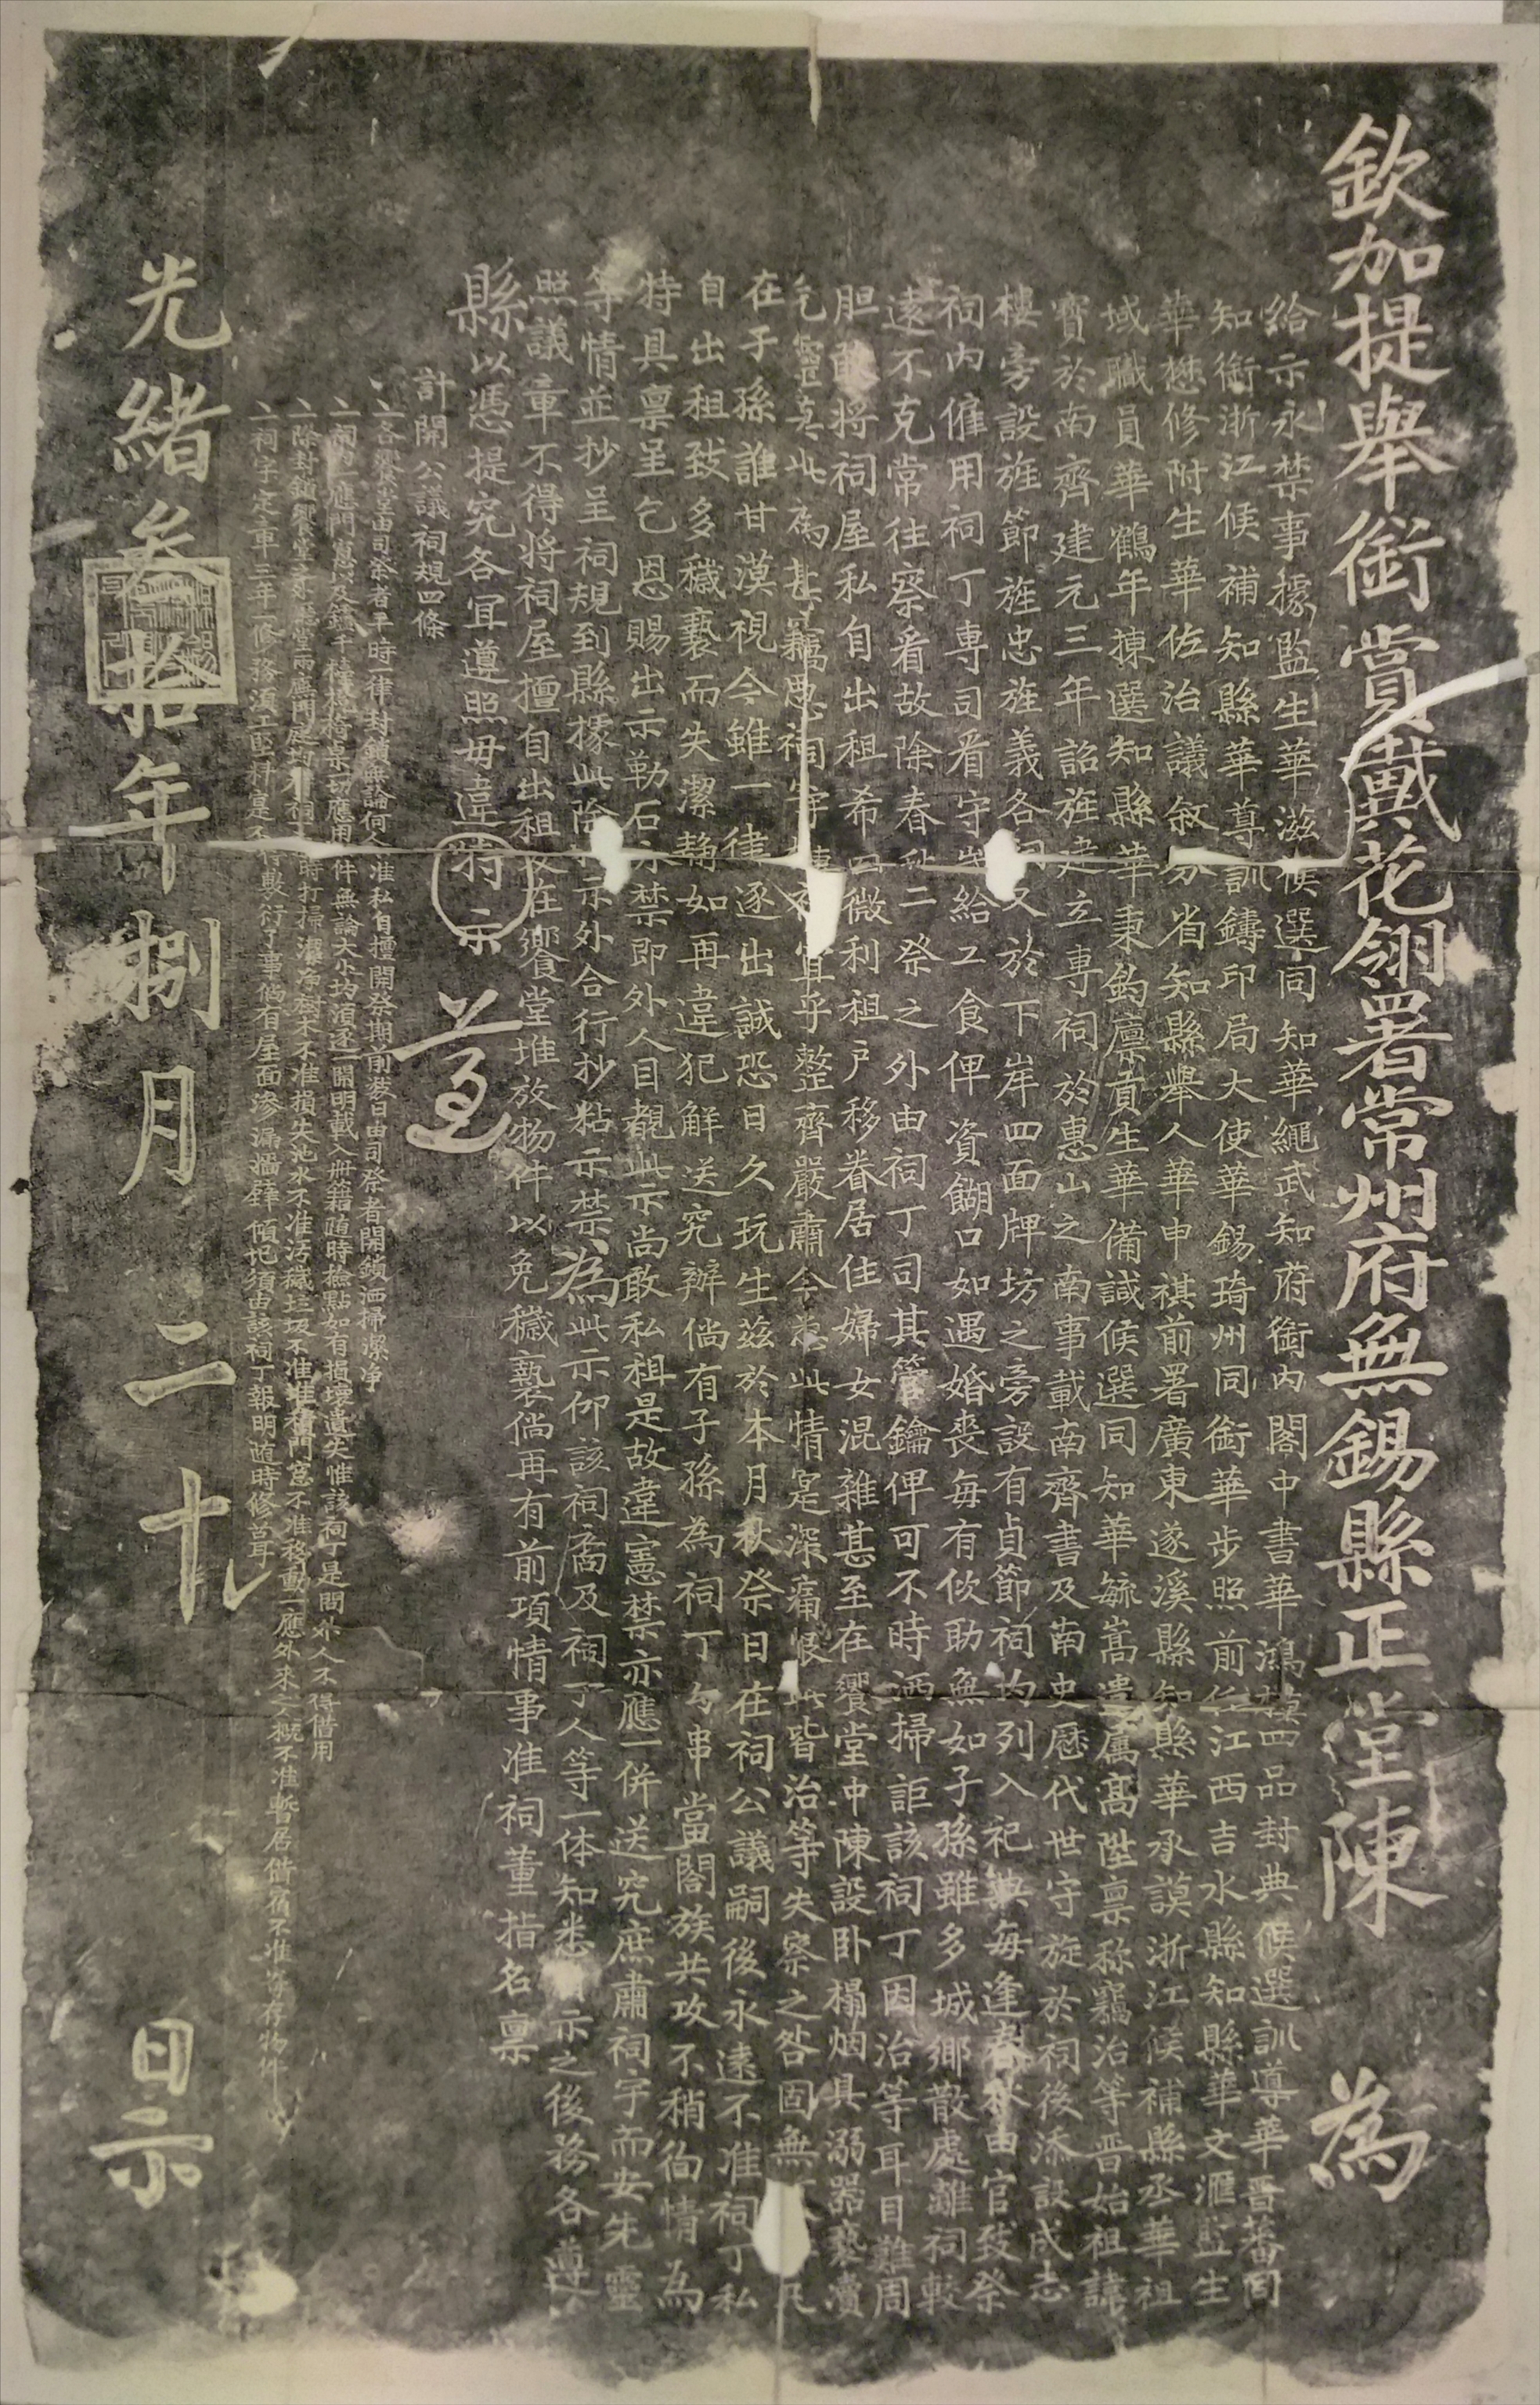 欽加提舉銜賞戴花翎署常州府無錫縣正堂陳 為
給示永禁事據監生華滋候選同知華繩武知府銜內閣中書華鴻模四品封典候選訓導華晉蕃同
知銜浙江候補知縣華蓴訓鑄印局大使華錫琦州同銜華步照前任江西吉水縣知縣華文滙監生
華懋修附生華佐治議敘分省知縣舉人華申祺前署廣東遂溪縣知縣華承謨浙江候補縣丞華祖
域職員華鶴年揀選知縣華秉鈞廩貢生華備諴候選同知華毓嵩遣屬高陞稟稱竊治等晉始祖諱
寶於南齊建元三年詔旌建立專祠於惠山之南事載南齊書及南史歷代世守旋於祠後添設成志
樓旁設旌節旌忠旌義各祠又於下岸四面牌坊之旁設有貞節祠均列入祀典每逢春秋由官致祭
祠內僱用祠丁專司看守岁給工食俾資餬口如遇婚喪每有佽助無如子孫雖多城鄉散處離祠較
遠不克常往察看故除春秋二祭之外由祠丁司其管鑰俾可不時洒掃詎該祠丁因治等耳目難周
胆敢將祠屋私自出租希圖微利租户移眷居住婦女混雜甚至在饗堂中陳設卧榻烟具溺器褻瀆
先靈莫此為甚竊思祠宇宜乎整齊嚴肅今忽此情寔深痛恨此皆治等失察之咎固無
在子孫誰甘漠視今雖一律逐出誠恐日久玩生茲於本月秋祭日在祠公議嗣後永遠不准祠丁私
自出租致多穢褻而失潔靜如再違犯解送究辦倘有子孫為祠丁勾串當闔族共攻不稍徇情為
特具稟呈乞恩賜出示勒石永禁即外人目覩此示尚敢私租是故違憲禁亦應一併送究庶肅祠宇而安先靈
等情並抄呈祠規到縣據此除示外合行抄粘示禁為此示仰該祠裔及祠丁人等一体知悉自示之後務各遵
照議章不得將祠屋擅自出租及在饗堂堆放物件以免穢褻倘再有前項情事准祠董指名稟
縣以憑提究各宜遵照毋違特示 遵
計開公議祠規四條
一各饗堂由司祭者平時一律封鎖無論何人不准私自擅開祭期前数日由司祭者開鎖洒掃潔净
一祠內一應門窗以及鐵千檯杌椅桌一切應用物件無論大小均須逐一開明載入冊籍随時檢點如有損壞遺失惟該祠丁是問外人不得借用
一除封鎖饗堂之外堂兩廡門庭均由祠丁時時打掃潔净樹木不准損失池水不准污穢垃圾不准堆積門窗不准移動一應外來之人概不准暫居借宿不准寄存物件
一祠宇定章三年一修務須工堅料足不得敷衍了事倘有屋面滲漏牆壁傾圮須由該祠丁報明随時修葺
光緒叁拾年捌月二十九日示